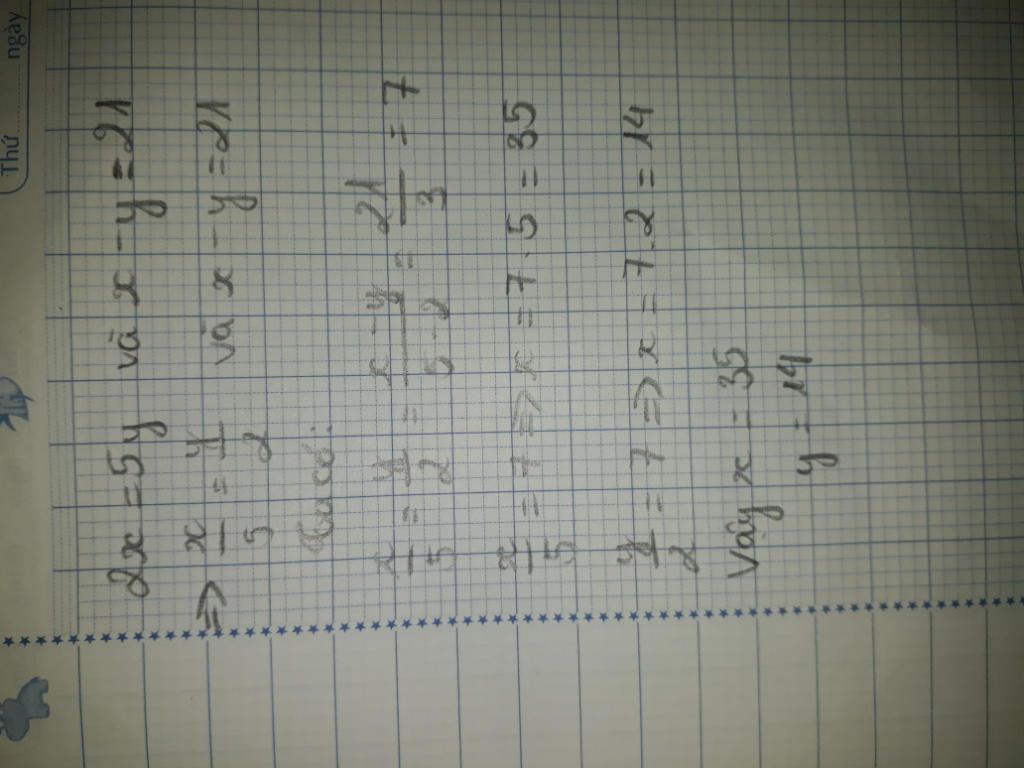 Thứ ngày
2x = 5y và x - y = 21
=> x/5 = y/2 và x - y = 21
Ta có:
x/5 = y/2 = x - y/5 - 2 = 21/3 = 7
x/5 = 7 => x = 7.5 = 35
y/2 = 7 => x = 7.2 = 14
Vậy x = 35
y = 14